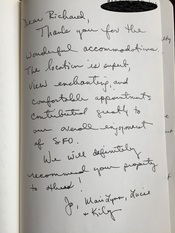 Dear Richard,
Thank you for the
wonderful accommodations.
The location is superb,
view enchanting, and
comfortable appointments
contributed greatly to
our overall enjoyment
of SFO.
We will definitely
recommend your property
to others!
Jo, Lucie